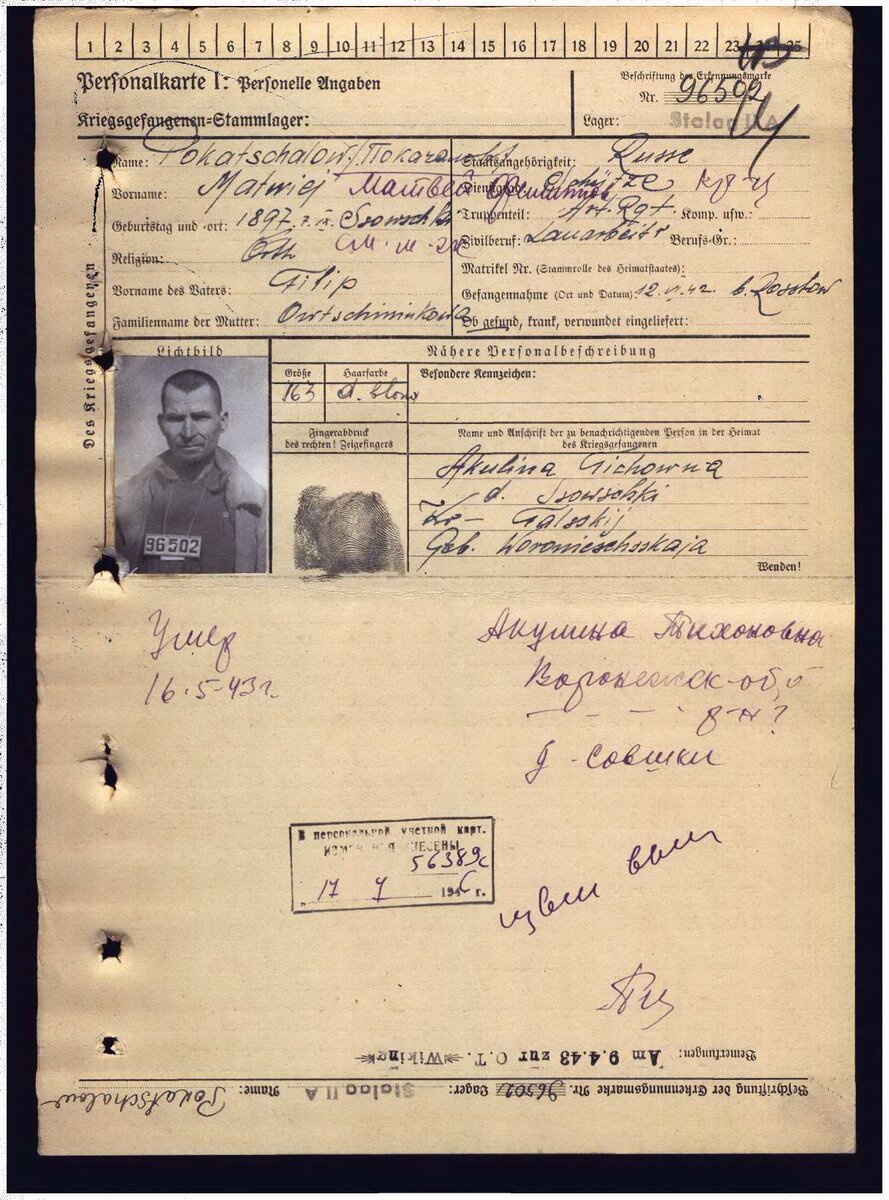 1 2 3 4 5 6 7 8 9 10 11 12 13 14 15 16 17 18 19 20 21 22 23 25
Personalkarte I: Personelle Angaben
Beschriftung der Erkennungsmarke
Nr. 96502
Kriegsgefangenen-Stammlager:
Lager: Stalag II A
Des Kriegsgefangenen
Name: Pokatschalow
Staatsangehörigkeit: Russe
Vorname: Matwiej Матвей
Dienstgrad: Schütze
Geburtstag und -ort: 1897
Truppenteil: Art. Rgt. Komp. usw.:
Zivilberuf: Berufs-Gr.:
Religion: Orth
Matrikel Nr. (Stammrolle des Heimatstaates):
Vorname des Vaters: Filip
Gefangennahme (Ort und Datum): 12.VI.42. b. Rosstow
Familienname der Mutter:
Ob gesund, krank, verwundet eingeliefert:
Lichtbild
Nähere Personalbeschreibung
Größe
163
Haarfarbe
d. blond
Besondere Kennzeichen:
Fingerabdruck
des rechten! Zeigefingers
Name und Anschrift der zu benachrichtigenden Person in der Heimat
des Kriegsgefangenen
Akulina Tichowna
d. Ssowschki
Kr-
Geb. Woronieschsskaja
Wenden!
96502
Умер
16.5-43г.
Акулина Тихоновна
Воронежск-
р-н?
д-Совшки
В персональной учетной карт.
56389с
17 7 1946 г.
Bemerkungen: Am 9.4.43 zur O.T. Wiking
Beschriftung der Erkennungsmarke Nr. 96502 Lager: Stalag II A Name: Pokatschalow